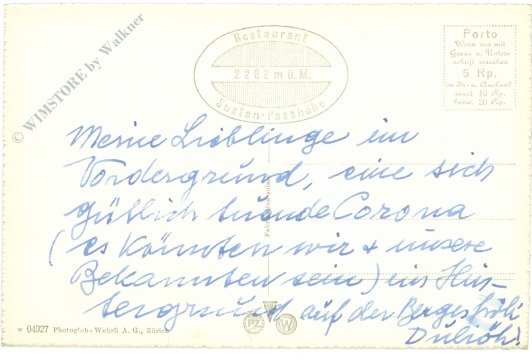 © WIMSTORE by Walkner
Restaurant
2262 m ü. M.
Susten-Passhöhe
Porto
Wenn nur mit
Gruss u. Unter-
schrift versehen
5 Rp.
im In- u. Ausland
sonst 10 Rp.
bezw. 20 Rp.
Meine Lieblinge im
Vordergrund, eine sich
gütlich tuende Corona
(es könnten wir + unsere
Bekannten sein) im Hin-
tergrund auf der Bergeshöh
W 04927 Photoglob-Wehrli A. G., Zürich
PZ W